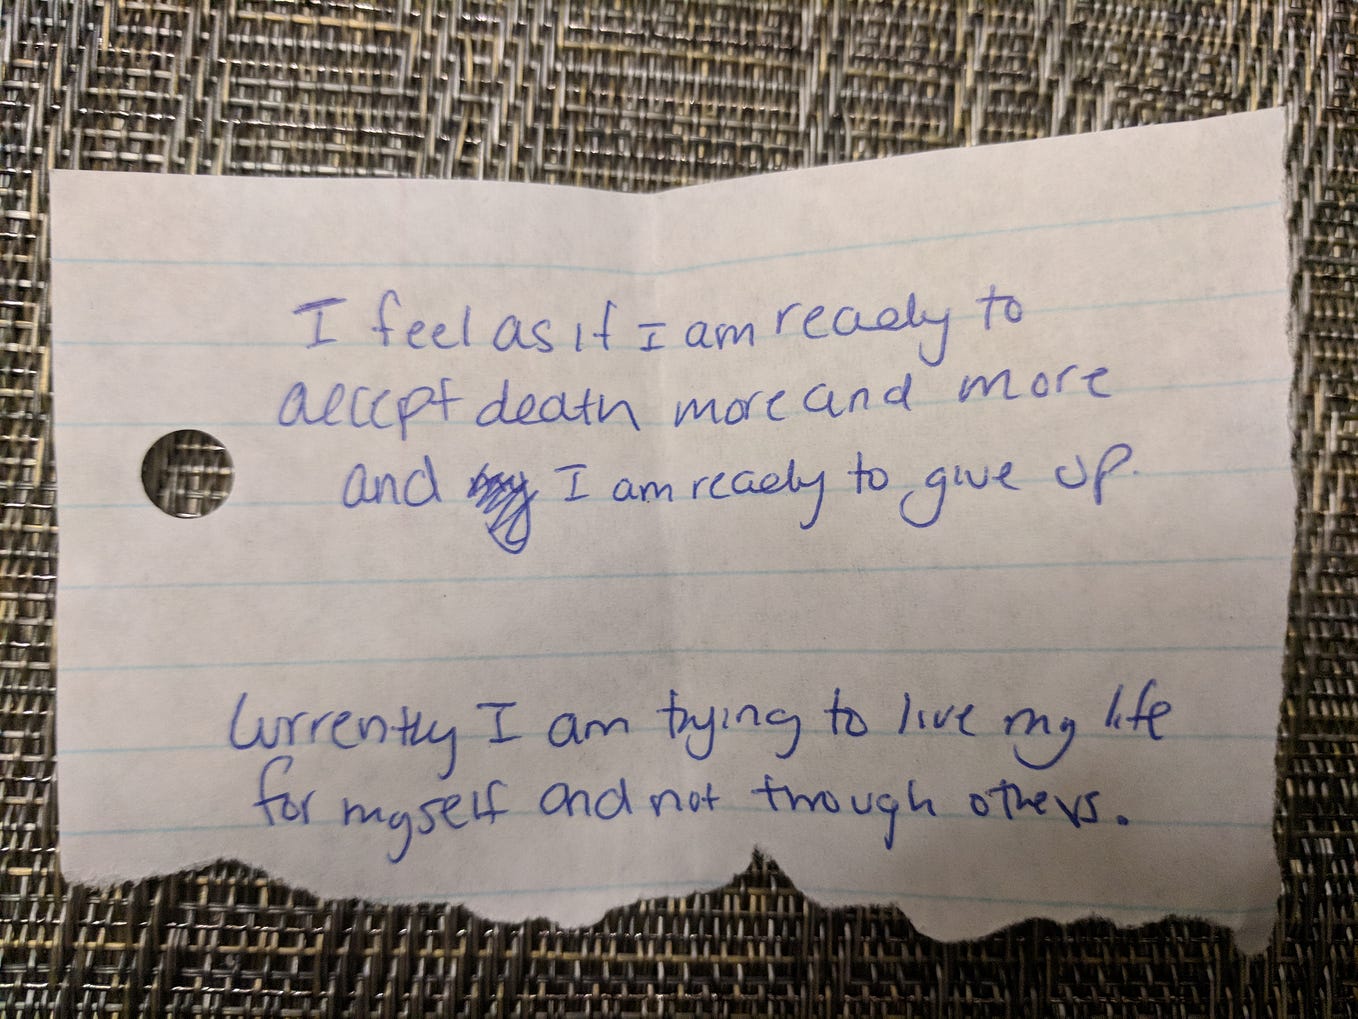 I feel as if I am ready to
accept death more and more
and I am ready to give up.
Currently I am trying to live my life
for myself and not through others.